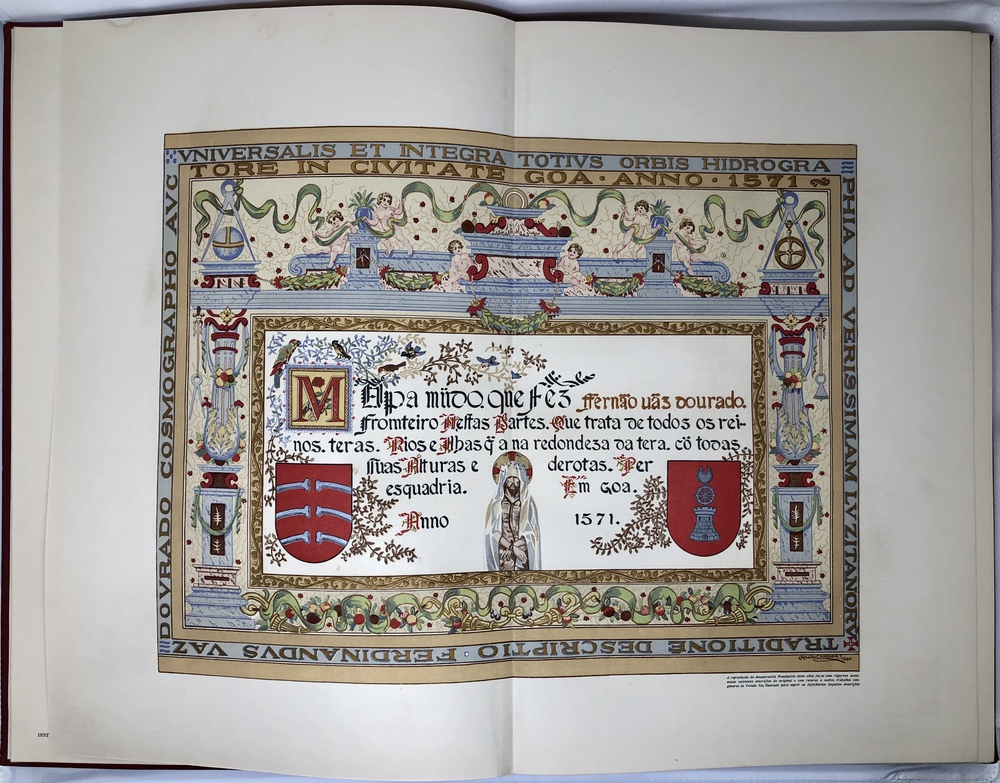 VNIVERSALIS ET INTEGRA TOTIVS ORBIS HIDROGRA
PHIA AD VERISSIMAM LVZITANORV
TRADITIONE DESCRIPTIO · FERDINANDVS VAZ
DOVRADO COSMOGRAPHO AVC
TORE IN CIVITATE GOA · ANNO · 1571
MApa mũdo que fez fernão uãs dourado.
fromteiro Nestas Partes. Que trata de todos os rei-
nos. teras. Rios e Ilhas q̃ a na redondesa da tera. cõ todas
suas Alturas e derotas. Per
esquadria. Em Goa.
Anno 1571.
INST